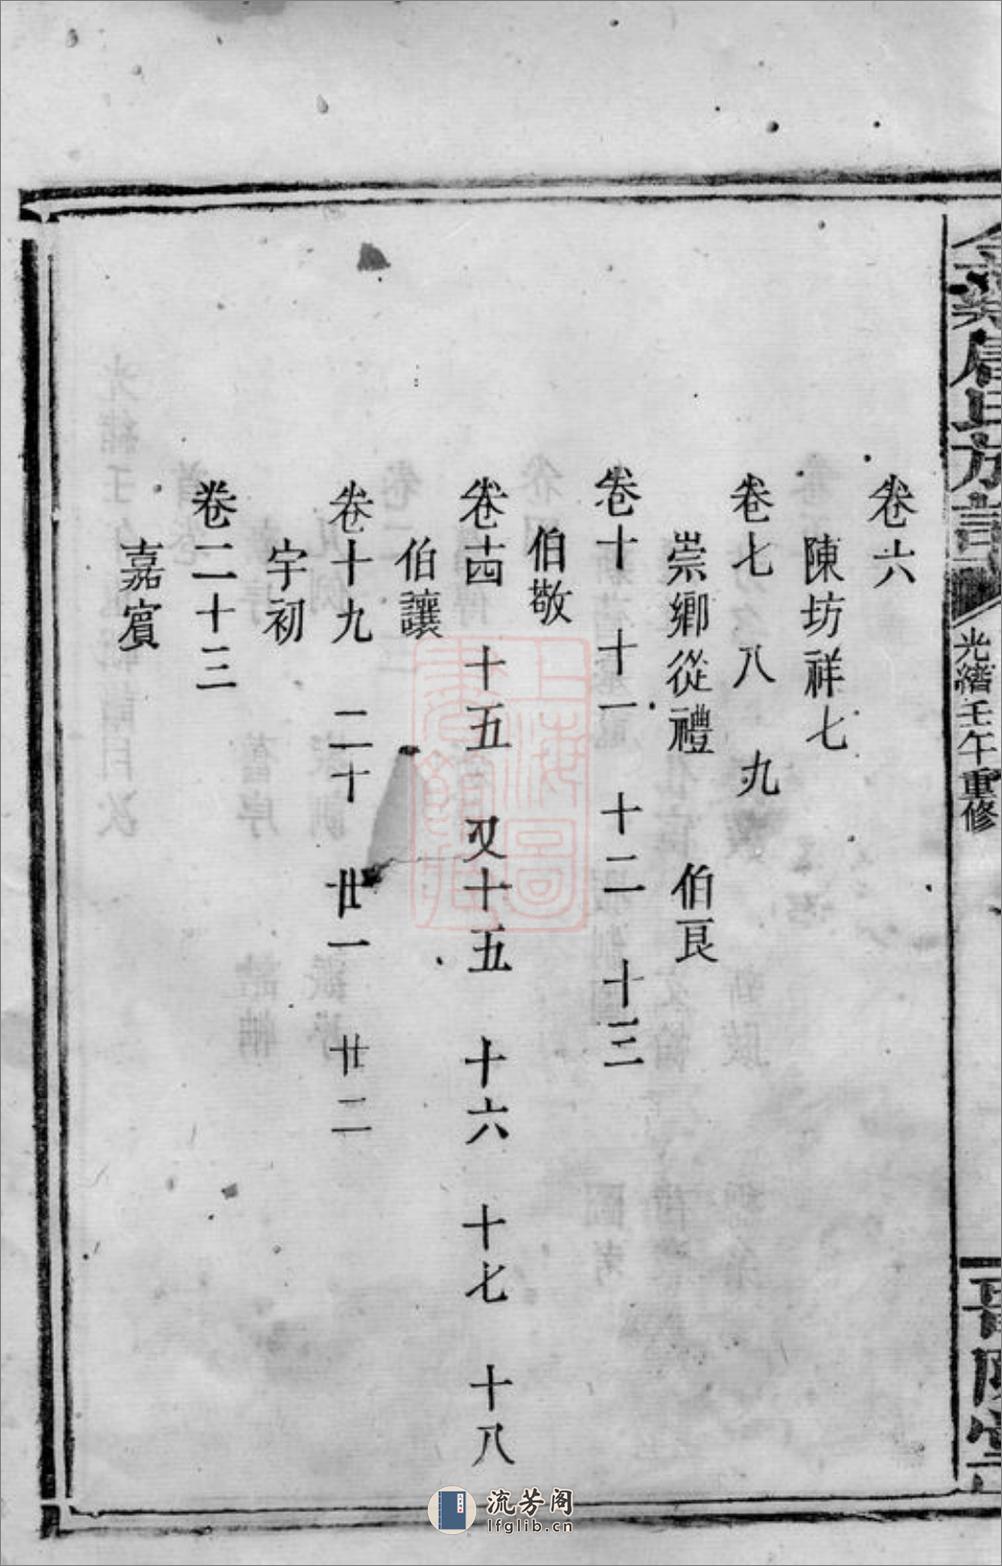 唐氏族譜
光緒壬午重修
晉陽堂
卷六
陳坊祥七
卷七 八 九
崇鄉從禮 伯良
卷十 十一 十二 十三
伯敬
卷十四 十五 又十五 十六 十七 十八
伯讓
卷十九 二十 廿一 廿二
宇初
卷二十三
嘉賓
上海圖書館藏
流芳阁
lfglib.cn